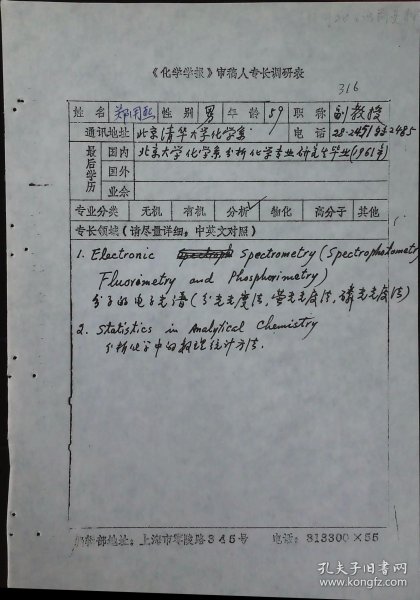 《化学学报》审稿人专长调研表
316
姓名 郑用熙 性别 男 年龄 59 职称 副教授
通讯地址 北京清华大学化学系 电话
最后学历 国内 北京大学化学系分析化学专业研究生毕业(1961年)
国外
业余
专业分类 无机 有机 分析✓ 物化 高分子 其他
专长领域(请尽量详细,中英文对照)
1. Electronic Spectrometry (Spectrophotometry
Fluorometry and Phosphorimetry)
分子的电子光谱(分光光度法,萤光光度法,磷光光度法)
2. Statistics in Analytical Chemistry
分析化学中的数理统计方法.
编辑部地址:上海市零陵路345号 电话:313300×55
孔夫子旧书网
www.kongfz.com